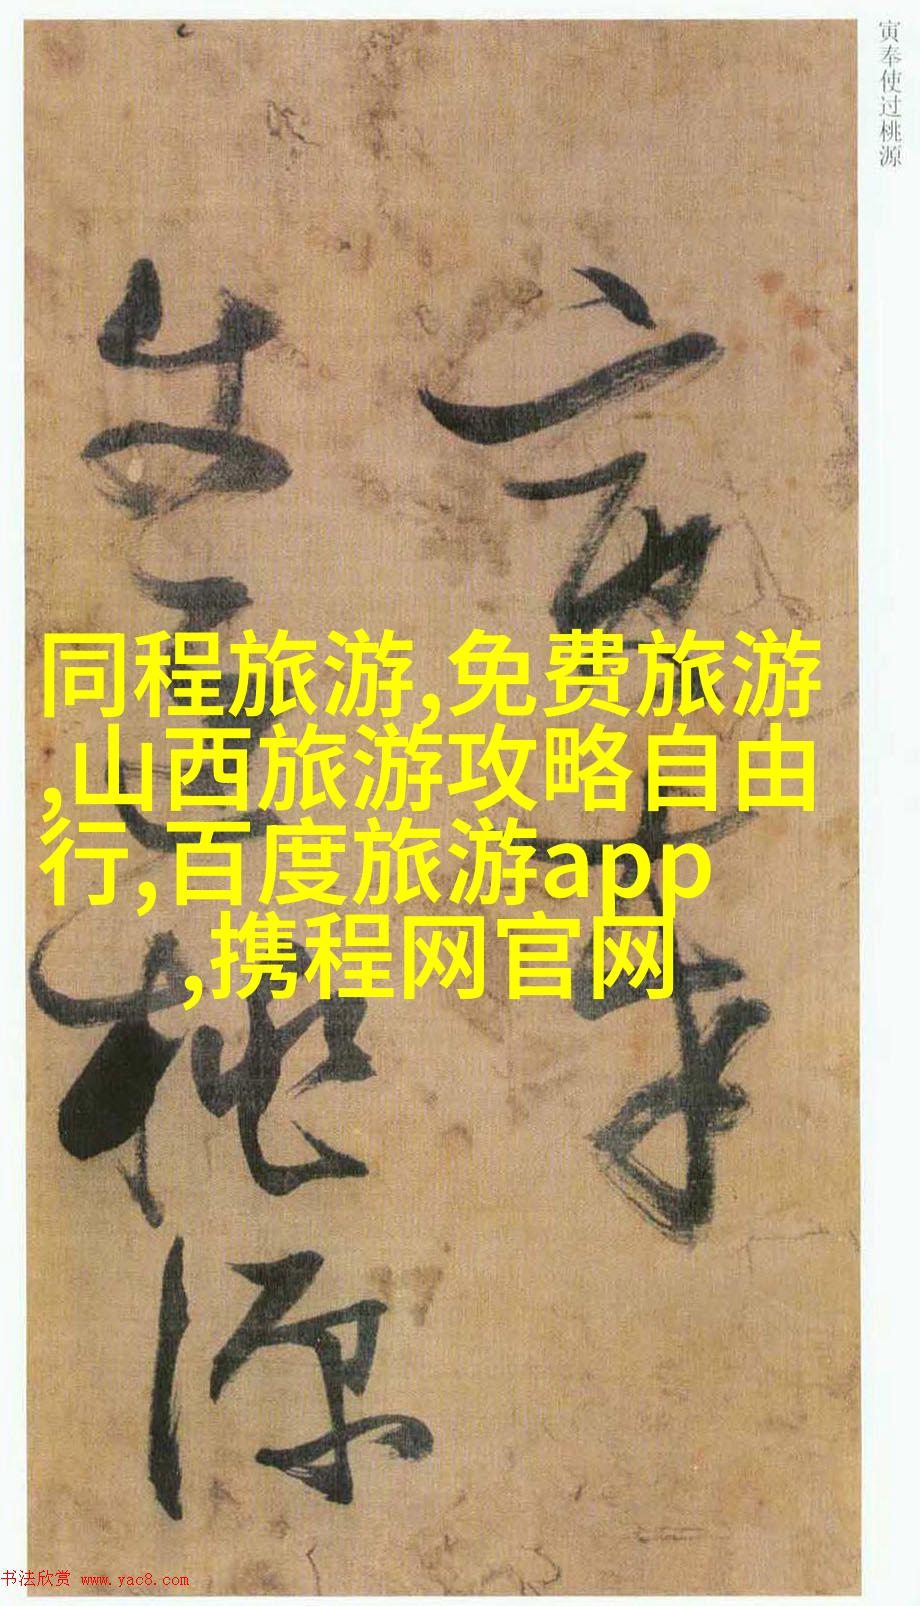 寅奉使过桃源
寅奉
使过桃源
同程旅游,免费旅游
,山西旅游攻略自由
行,百度旅游app
,携程网官网
书法欣赏 www.yac8.com